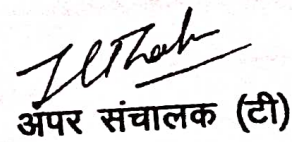 अपर संचालक (टी)